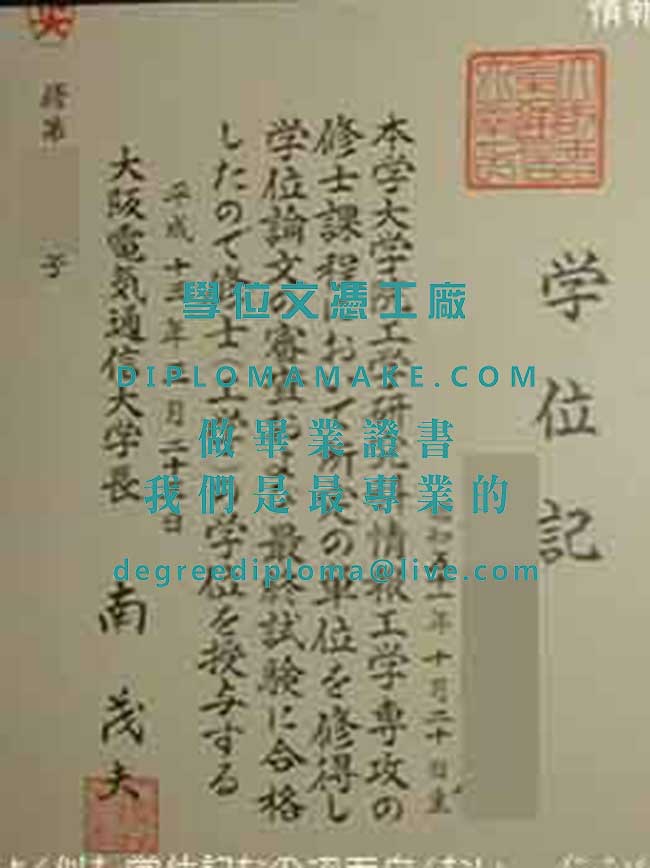 情報
学位記
昭和五十一年十月二十日生
本学大学院工学研究科情報工学専攻の
修士課程において所定の単位を修得し
学位論文の審査及び最終試験に合格
したので修士（工学）の学位を授与する
平成十三年三月二十日
大阪電気通信大学長
南茂夫
修第
号
學位文憑工廠
DIPLOMAMAKE.COM
做畢業證書
我們是最專業的
degreediploma@live.com